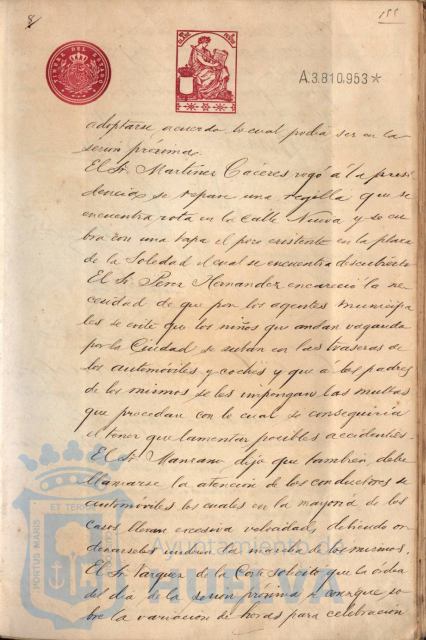 8
155
TIMBRE DEL ESTADO
A.3.810.953*
adoptarse acuerdo lo cual podía ser en la
sesión próxima.
El Sr. Martinez Caceres rogó á la presi
dencia se repare una regilla que se
encuentra rota en la Calle Nueva y se cu
bra con una tapa el pozo existente en la plaza
de la Soledad el cual se encuentra descubierto
El Sr. Perez Hernandez encareció la ne
cesidad de que por los agentes municipa
les se evite que los niños que andan vagando
por la Ciudad se suban en las traseras de
los automóviles y coches y que a los padres
de los mismos se les impongan las multas
que procedan con lo cual se conseguiria
el tener que lamentar posibles accidentes.
El Sr. Manzano dijo que tambien debe
llamarse la atención de los conductores de
automóviles los cuales en la mayoria de los
casos llevan excesiva velocidad, debiendo or
denarseles moderen la marcha de los mismos.
El Sr. Vazquez de la Corte solicitó que la orden
del dia de la sesión próxima se consigne so
bre la variación de horas para celebración
PORTUS MARIS ET TERRAE
Ayuntamiento de
HUELVA